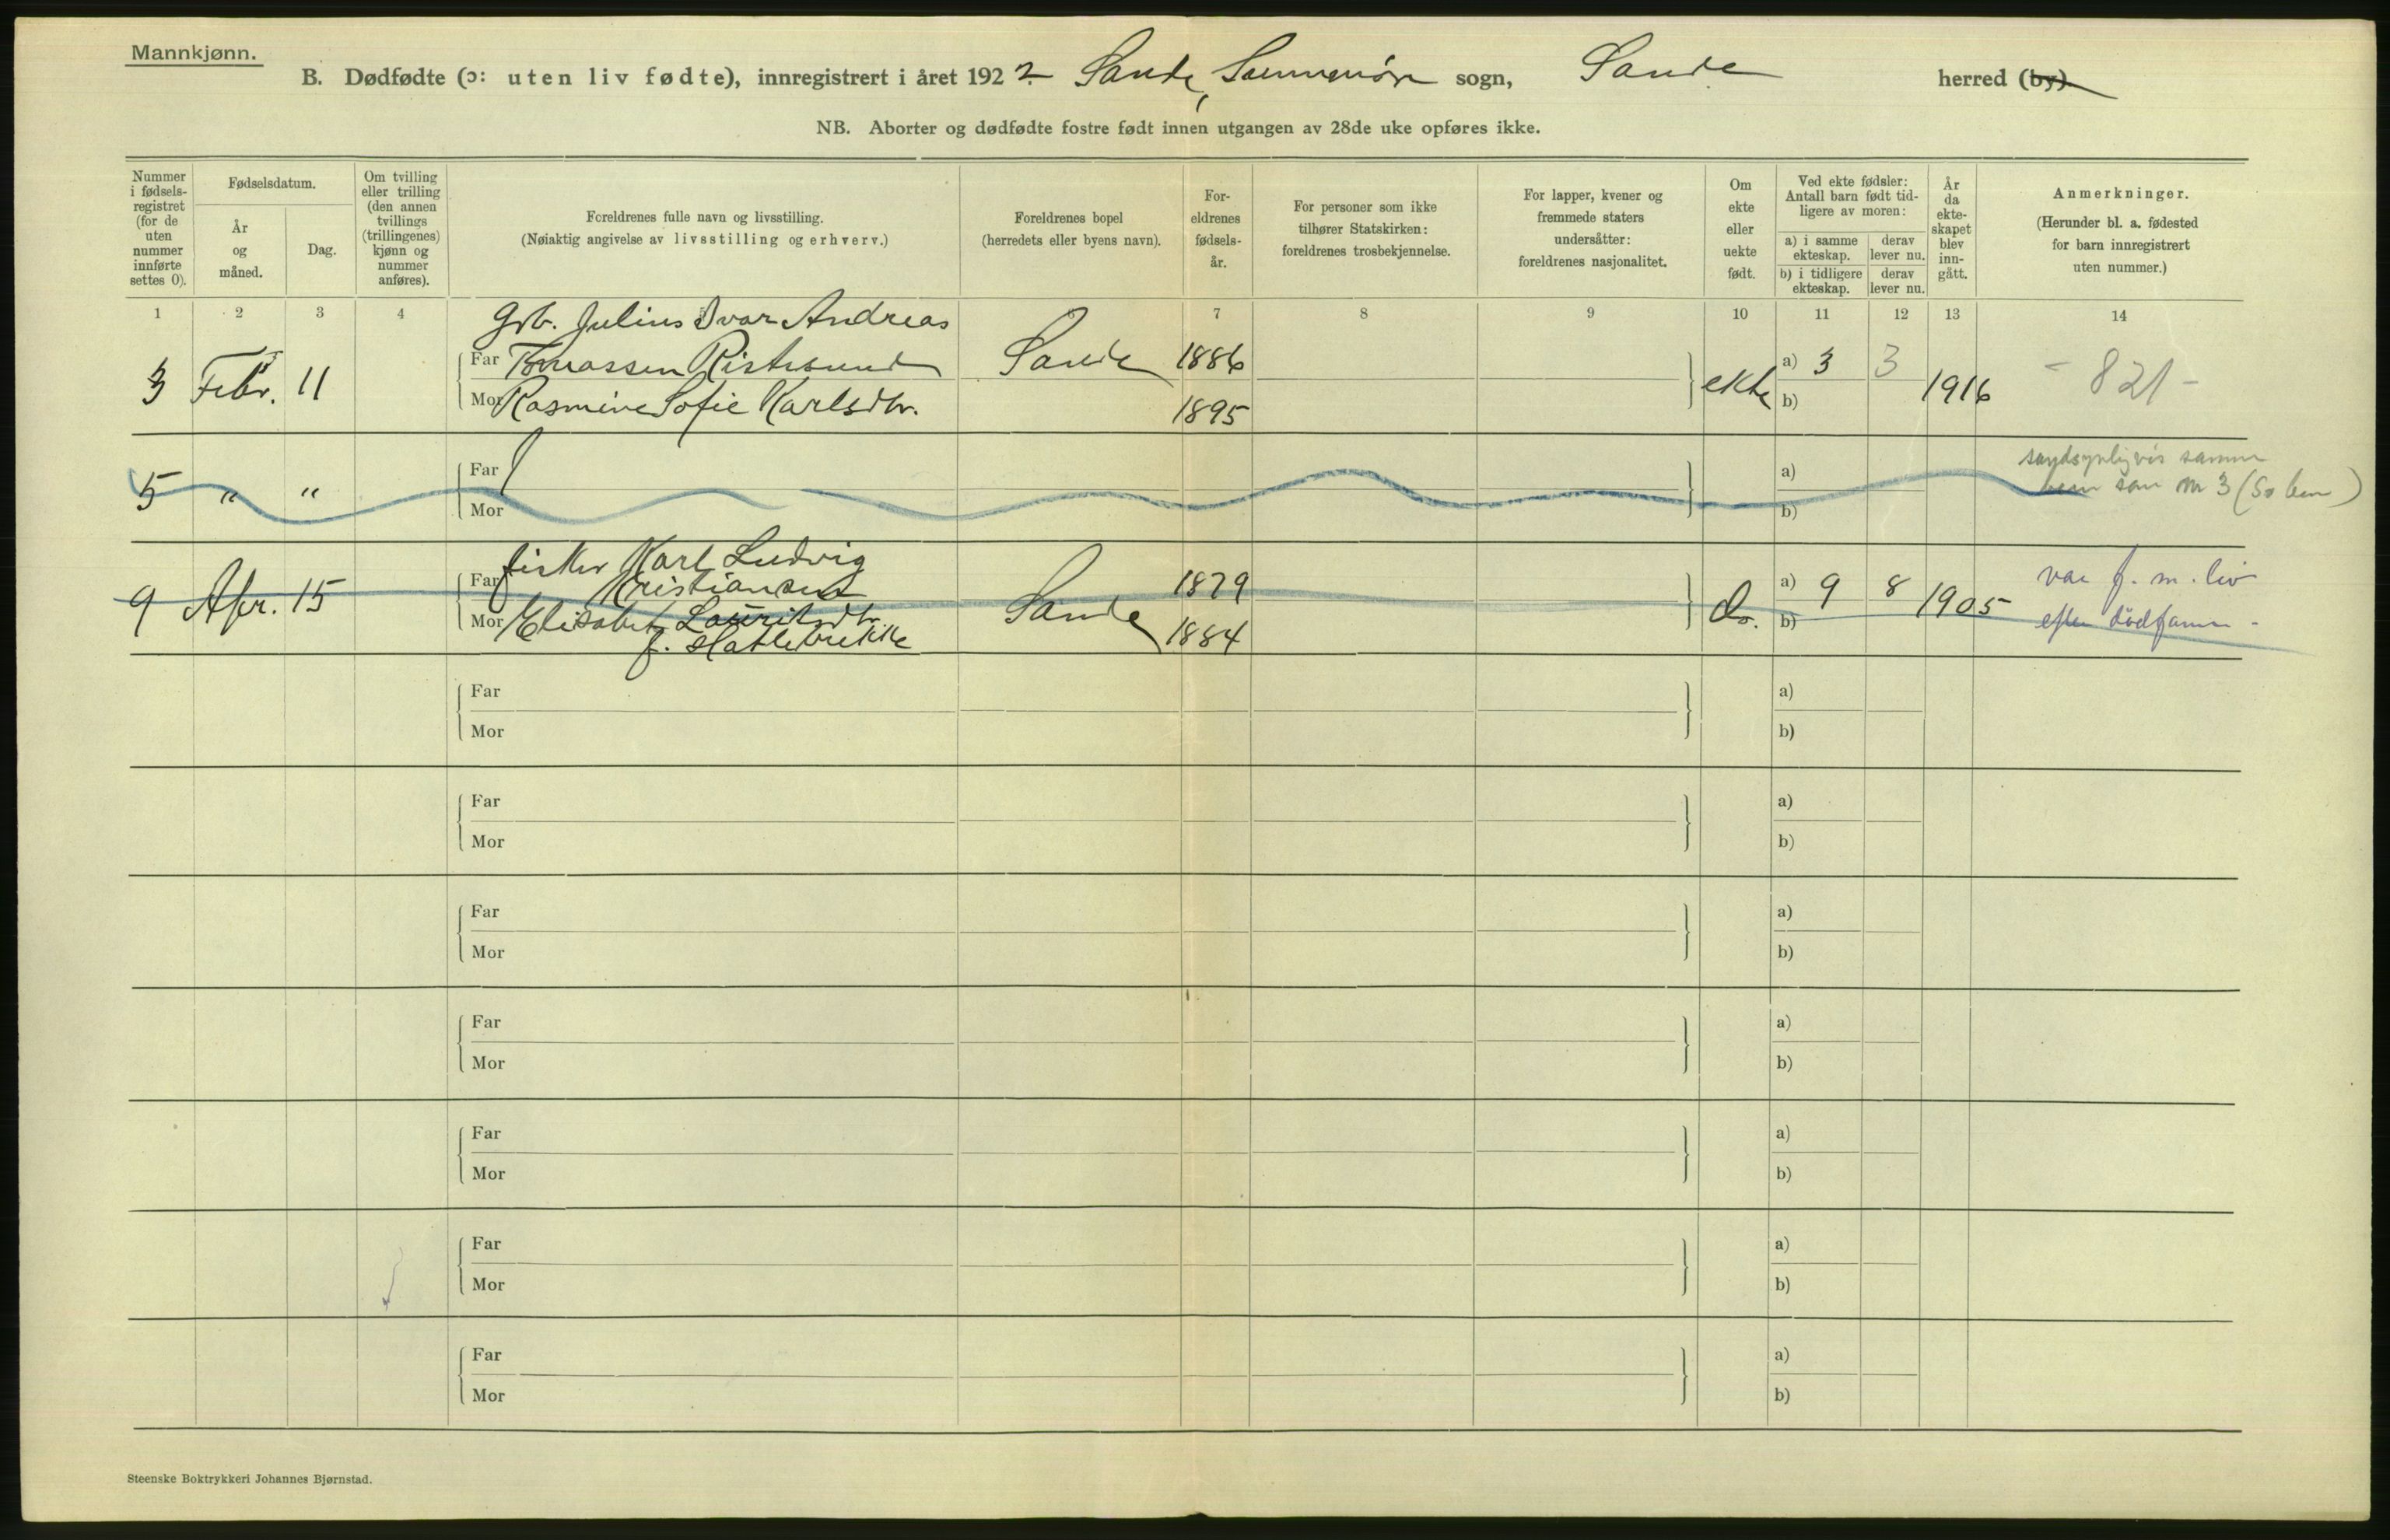 Mannkjønn.
B. Dødfødte (ɔ: uten liv fødte), innregistrert i året 1922 Sande, Sunnmøre sogn, Sande herred (by).
NB. Aborter og dødfødte fostre født innen utgangen av 28de uke opføres ikke.
Nummer i fødsels-registret (for de uten nummer innførte settes 0).
Fødselsdatum.
År og måned.
Dag.
Om tvilling eller trilling (den annen tvillings (trillingenes) kjønn og nummer anføres).
Foreldrenes fulle navn og livsstilling.
(Nøiaktig angivelse av livsstilling og erhverv.)
Foreldrenes bopel
(herredets eller byens navn).
For-eldrenes fødsels-år.
For personer som ikke tilhører Statskirken: foreldrenes trosbekjennelse.
For lapper, kvener og fremmede staters undersåtter: foreldrenes nasjonalitet.
Om ekte eller uekte født.
Ved ekte fødsler: Antall barn født tid-ligere av moren:
a) i samme ekteskap.
derav lever nu.
b) i tidligere ekteskap.
derav lever nu.
År da ekte-skapet blev inn-gått.
Anmerkninger.
(Herunder bl. a. fødested for barn innregistrert uten nummer.)
1 2 3 4 7 8 9 10 11 12 13 14
Grb. Julius Ivar Andreas
3 Febr. 11 Far Tomassen Ristesund Sande 1886 ekte a) 3 3 1916 - 821 -
Mor Rasmine Sofie Karlsdtr. 1895 b)
5 " " Far a) samme
Mor b) som nr 3
fisker Karl Ludvig
9 Apr. 15 Far Kristiansen Sande 1879 do. a) 9 8 1905 var f. m. liv
Mor Elisabet Lauritsdtr. 1884 b) efter dødfanm -
f. Hatlebrekke
Far a)
Mor b)
Far a)
Mor b)
Far a)
Mor b)
Far a)
Mor b)
Far a)
Mor b)
Far a)
Mor b)
Far a)
Mor b)
Steenske Boktrykkeri Johannes Bjørnstad.